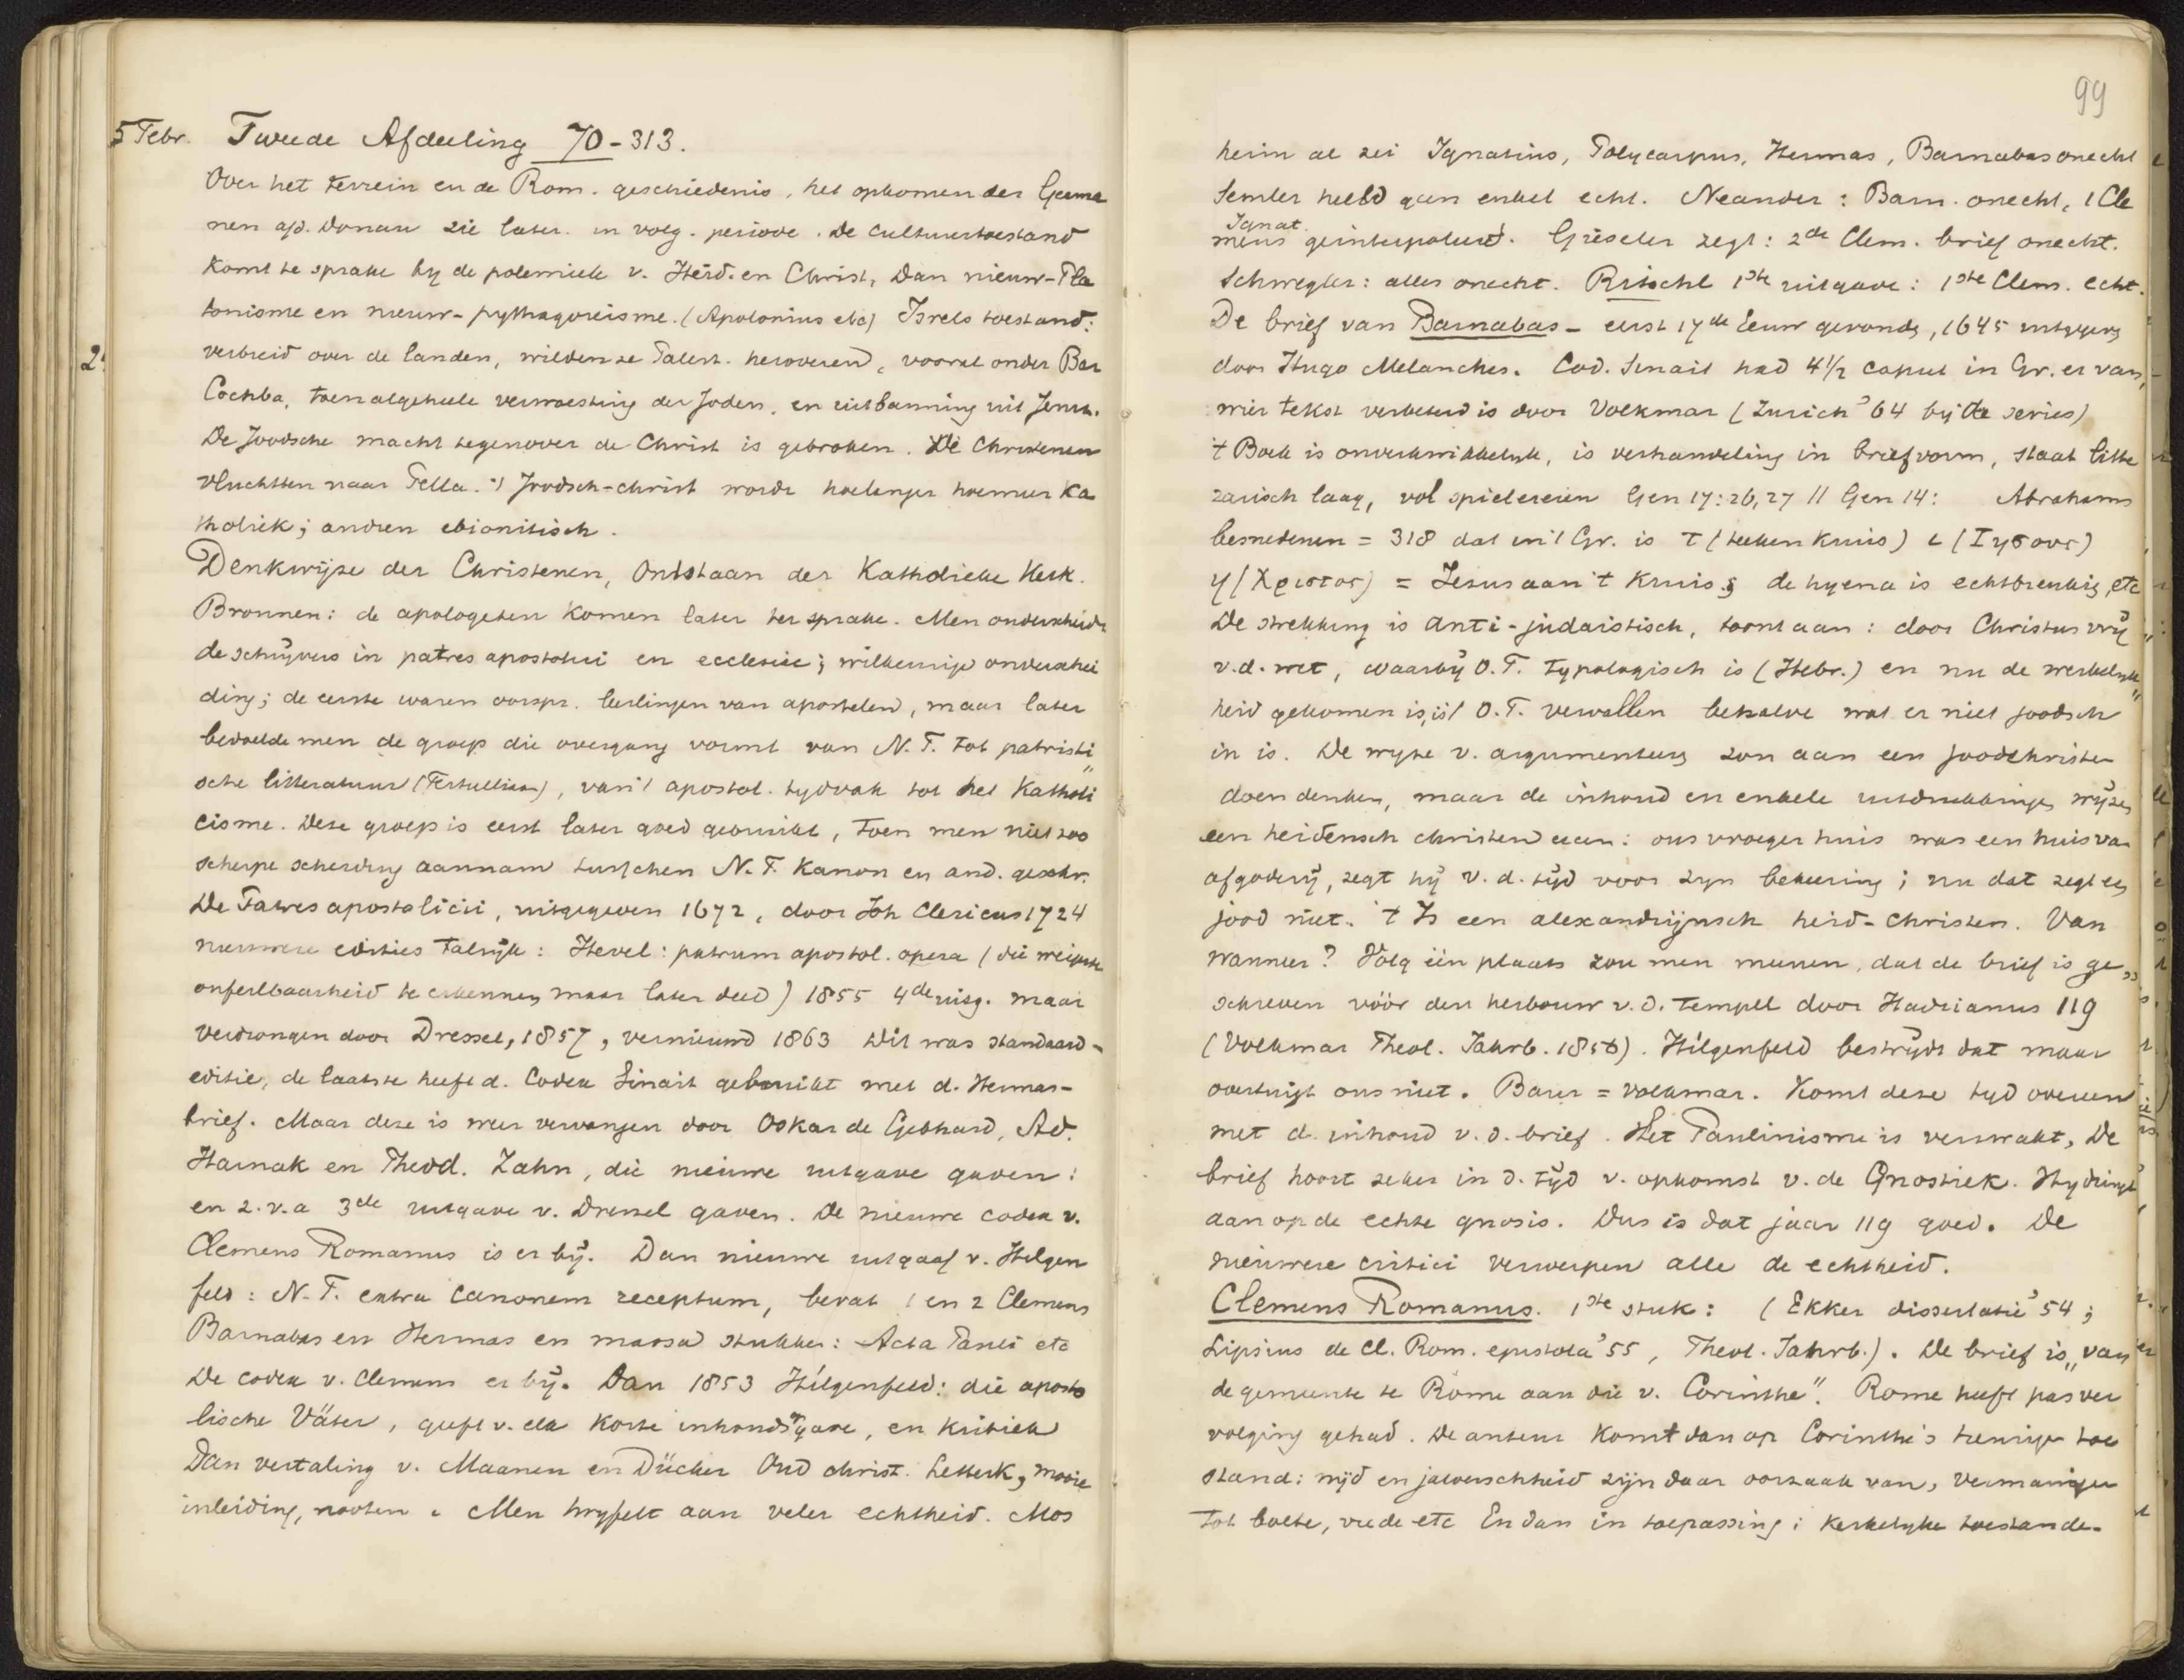 5 Febr. Tweede Afdeeling 70-313.
Over het terrein en de Rom. geschiedenis, het opkomen der Germa
nen a/d. Donau zie later in volg. periode. De cultuurtoestand
komt te sprake by de polemiek v. Heid. en Christ, Dan nieuw-Pla
tonisme en nieuw-pythagoreisme. (Apolonius etc) Isrels toestand:
verbreid over de landen, wilden ze Palest. heroveren, vooral onder Bar
Cochba, toen algeheele verwoesting der Joden, en uitbanning uit Jerus.
De Joodsche macht tegenover de Christ is gebroken. De Christenen
vluchtten naar Pella. 't Joodsch-christ wordt hoelanger hoemeer Ka
tholiek; andren ebionitisch.
Denkwijze der Christenen, Ontstaan der Katholieke Kerk.
Bronnen: de apologeten komen later ter sprake. Men onderscheidt
de schrijvers in patres apostolici en ecclesiae; willekeurige onderschei
ding; de eerste waren oorspr. leerlingen van apostelen, maar later
bedoelde men de groep die overgang vormt van N.T. tot patristi
sche litteratuur (Tertullian), van 't apostol. tydvak tot het Katholi
cisme. Deze groep is eerst later goed gebruikt, toen men niet zoo
scherpe scheiding aannam tusschen N.T. Kanon en and. geschr.
De Patres apostolicii, uitgegeven 1672, door Joh Clericus 1724
nieuwere edities talrijk: Hevel: patrum apostol. opera (die weigerde
onfeilbaarheid te erkennen, maar later deed) 1855 4de uitg. maar
verdrongen door Dressel, 1857, vernieuwd 1863 Dit was standaard-
editie, de laatste heeft d. Codex Sinait gebruikt met d. Hermas-
brief. Maar deze is weer vervangen door Oskar de Gebhard, Ad.
Harnak en Theod. Zahn, die nieuwe uitgave gaven:
en z.v.a 3de uitgave v. Dressel gaven. De nieuwe codex v.
Clemens Romanus is er bij. Dan nieuwe uitgaaf v. Hilgen
feld: N.T. extra canonem receptum, bevat 1 en 2 Clemens
Barnabas en Hermas en massa stukken: Acta Pauli etc
De codex v. Clemens er bij. Dan 1853 Hilgenfeld: die aposto
lische Väter, geeft v. elk korte inhoudsgave, en kritiek
Dan vertaling v. Maanen en Dücker Oud christ. Letterk, mooie
inleiding, nooten. Men twyfelt aan veler echtheid. Mos
99
heim al zei Ignatius, Polycarpus, Hermas, Barnabas onecht
Semler hield geen enkel echt. Neander: Barn. onecht, 1 Cle
Ignat.
mens geinterpoleerd. Gieseler zegt: 2de Clem. brief onecht.
Schwegler: alles onecht. Ritschl 1ste uitgave: 1ste Clem. echt.
De brief van Barnabas - eerst 17de Eeuw gevonden, 1645 uitgegeven
door Hugo Melanches. Cod. Sinait had 4½ caput in Gr. er van,
wier tekst verbeterd is door Volkmar (Zurich '64 bij de series)
't Boek is onverkwikkelyk, is verhandeling in briefvorm, staat litte
rarisch laag, vol spielereien Gen 17:26,27 // Gen 14: Abrahams
besnedenen = 318 dat in 't Gr. is T (teeken Kruis) ι (Ιησους)
η (Χριστος) = Jesus aan 't Kruis; de hyena is echtbreukig, etc
De strekking is anti-judaistisch, toont aan: door Christus vrij
v.d. wet, waarbij O.T. typologisch is (Hebr.) en nu de werkelyk
heid gekomen is, is 't O.T. vervallen behalve wat er niet joodsch
in is. De wyze v. argumenteering zou aan een joodchristen
doen denken, maar de inhoud en enkele uitdrukkingen wijzen
een heidensch christen aan: ons vroeger huis was een huis van
afgoderij, zegt hij v.d. tijd voor zyn bekeering; nu dat zegt een
jood niet. 't Is een alexandrijnsch heid-christen. Van
wanneer? Volg één plaats zou men meenen, dat de brief is ge
schreven vóór den herbouw v.d. tempel door Hadrianus 119
(Volkmar Theol. Jahrb. 1856). Hilgenfeld bestrijdt dat maar
overtuigt ons niet. Baur = Volkmar. Komt deze tyd overeen
met d. inhoud v.d. brief. Het Paulinisme is verzwakt, De
brief hoort zeker in d. tijd v. opkomst v. de Gnostiek. Hy dringt
aan op de echte gnosis. Dus is dat jaar 119 goed. De
nieuwere critici verwerpen alle de echtheid.
Clemens Romanus. 1ste stuk: (Ekker dissertatie '54;
Lipsius de Cl. Rom. epistola '55, Theol. Jahrb.). De brief is „van
de gemeente te Rome aan die v. Corinthe". Rome heeft pas ver
volging gehad. De auteur komt dan op Corinthe's treurige toe
stand: nijd en jaloerschheid zijn daar oorzaak van, vermaningen
tot boete, vrede etc En dan in toepassing: Kerkelyke toestande-